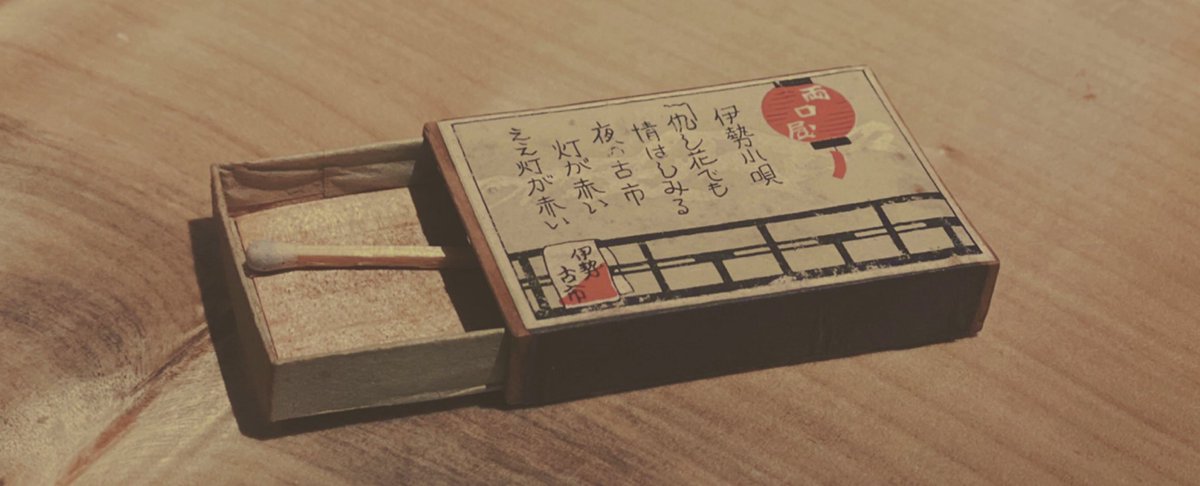 両口屋
伊勢小唄
〽仇し花でも
情はしみる
夜の古市
灯が赤い
ええ灯が赤い
伊勢
古市